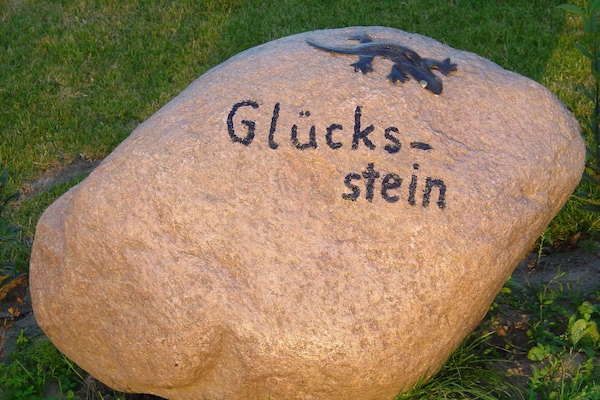 Glücks-
stein